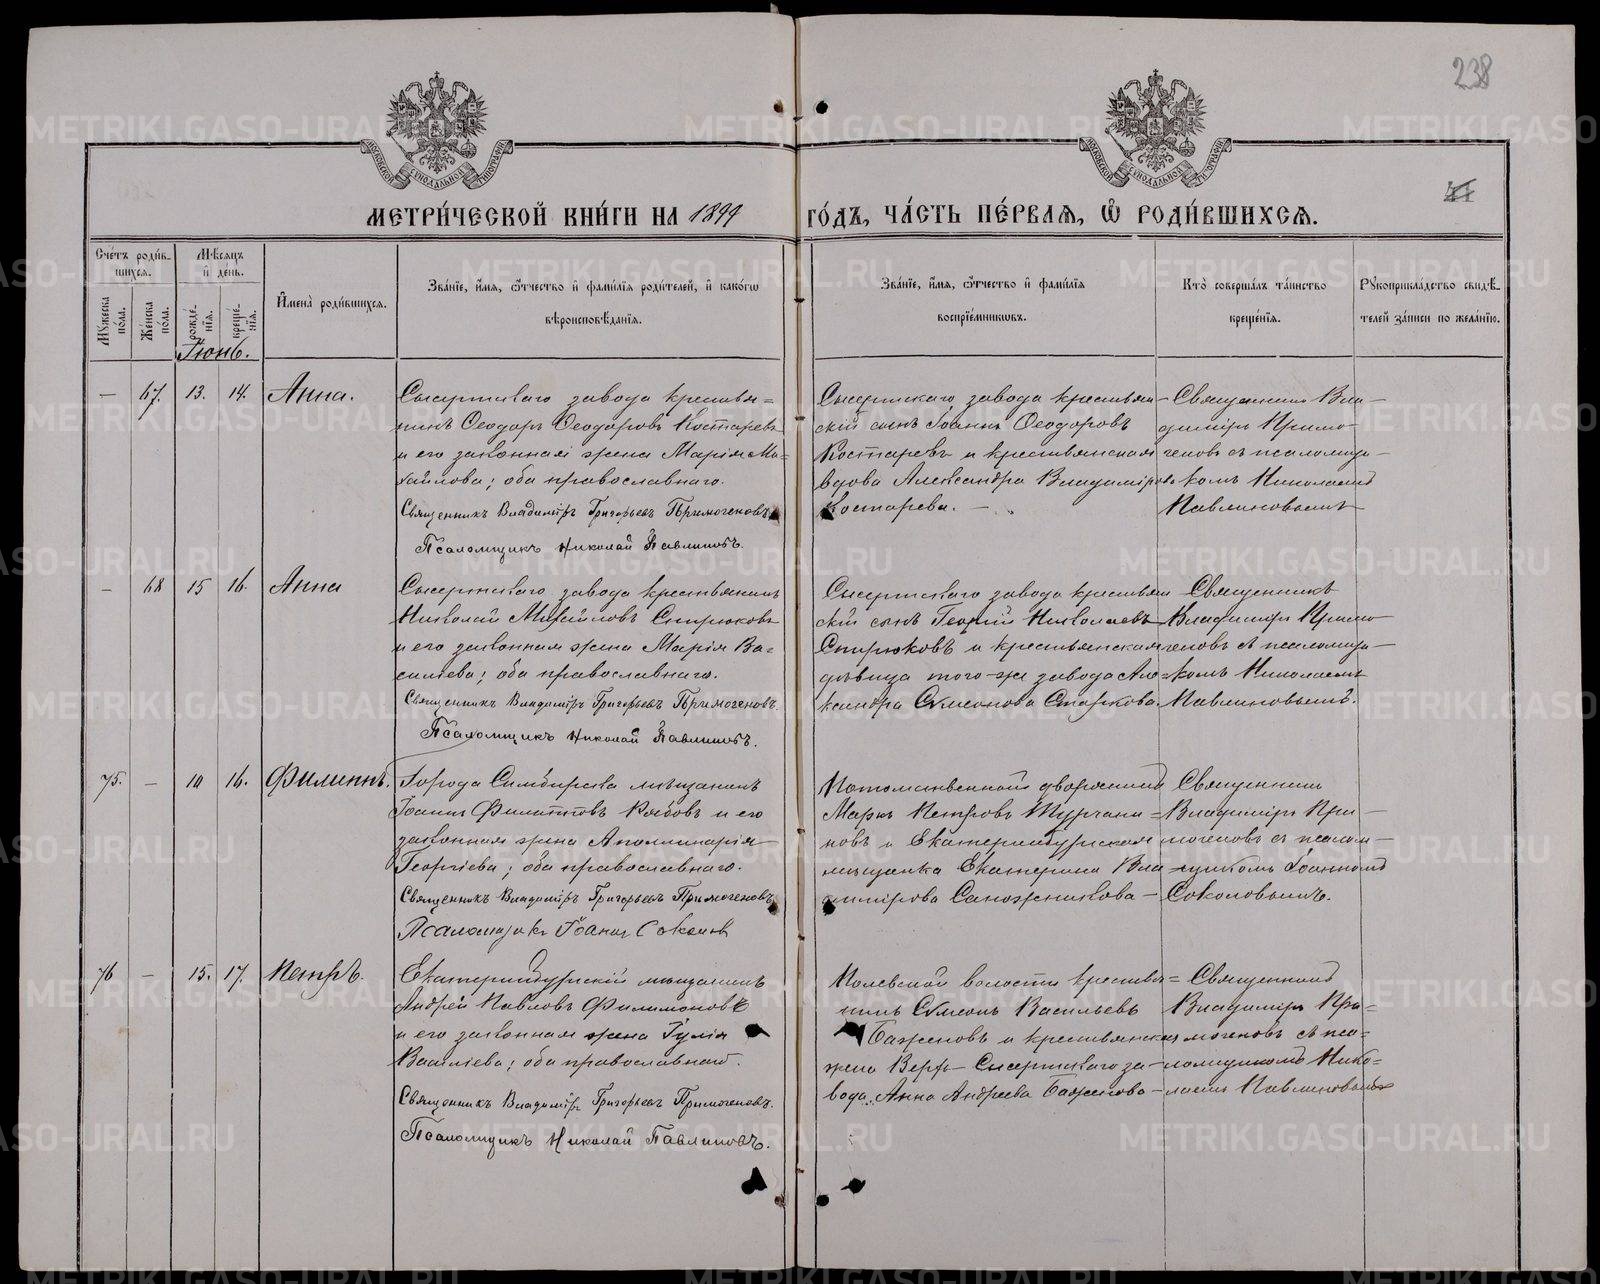 238
МОСКОВСКОЙ СѴНОДАЛЬНОЙ ТИПОГРАФІИ
МОСКОВСКОЙ СѴНОДАЛЬНОЙ ТИПОГРАФІИ
МЕТРИ́ЧЕСКОЙ КНИ́ГИ НА 1899 ГО́ДЪ, ЧА́СТЬ ПЕ́РВАЯ, Ѡ҆ РОДИ́ВШИХСЯ.
Сче́тъ роди́в-
шихся.
Мѣ́сяцъ
и҆ де́нь.
И҆мена̀ роди́вшихся.
Зва́нїе, и҆́мя, ѻ҆́тчество и҆ фами́лїя роди́телей, и҆ како́гѡ
вѣроисповѣ́данїя.
Зва́нїе, и҆́мя, ѻ҆́тчество и҆ фами́лїя
воспрїе́мниковъ.
Кто̀ соверша́лъ та́инство
креще́нїя.
Рꙋкоприкла́дство свидѣ́-
телей за́писи по жела́нїю.
Мꙋ́жеска
по́ла.
Же́нска
по́ла.
рожде́-
нїя.
креще́-
нїя.
Іюнь.
— 67. 13. 14. Анна.
Сысертскаго завода крестья=
нинъ Ѳеодоръ Ѳеодоровъ Костаревъ
и его законная жена Марія Ми=
хайлова; оба православнаго.
Священникъ Владиміръ Григорьевъ Примогеновъ
Псаломщикъ Николай Павлиновъ.
Сысертскаго завода крестьян-
скій сынъ Іоаннъ Ѳеодоровъ
Костаревъ и крестьянская
вдова Александра Владимірова
Костарева. —
Священникъ Вла-
диміръ Примо-
геновъ съ псаломщи-
комъ Николаемъ
Павлиновымъ
— 68 15 16. Анна
Сысертскаго завода крестьянинъ
Николай Михайловъ Спирюковъ
и его законная жена Марія Ва=
сильева; оба православнаго.
Священникъ Владиміръ Григорьевъ Примогеновъ.
Псаломщикъ Николай Павлиновъ.
Сысертскаго завода крестьян
скій сынъ Георгій Николаевъ
Спирюковъ и крестьянская
дѣвица того-же завода Але=
ксандра Сѵмеонова Старкова.
Священникъ
Владиміръ Примо-
геновъ съ псаломщи-
комъ Николаемъ
Павлиновымъ.
75. — 10 16. Филиппъ.
Города Симбирска мѣщанинъ
Іоаннъ Филипповъ Рябовъ и его
законная жена Аполлинарія
Георгіева; оба православнаго.
Священникъ Владиміръ Григорьевъ Примогеновъ
Псаломщикъ Іоаннъ Соколовъ
Потомственный дворянинъ
Маркъ Петровъ Турчани=
новъ и Екатеринбургская
мѣщанка Екатерина Вла
димірова Сапожникова —
Священникъ
Владиміръ При-
могеновъ съ псалом-
щикомъ Іоанномъ
Соколовымъ.
76 — 15. 17. Петръ.
Екатеринбургскій мѣщанинъ
Андрей Павловъ Филимоновъ
и его законная жена Іулія
Васильева; оба православнаго.
Священникъ Владиміръ Григорьевъ Примогеновъ.
Псаломщикъ Николай Павлиновъ.
Полевской волости крестья=
нинъ Сѵмеонъ Васильевъ
Баженовъ и крестьянская
жена Верхъ-Сысертскаго за-
вода Анна Андреева Баженова —
Священникъ
Владиміръ При=
могеновъ съ пса-
ломщикомъ Нико=
лаемъ Павлиновымъ
METRIKI.GASO-URAL.RU